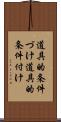 道具的条件
づけ道具的
条件付け